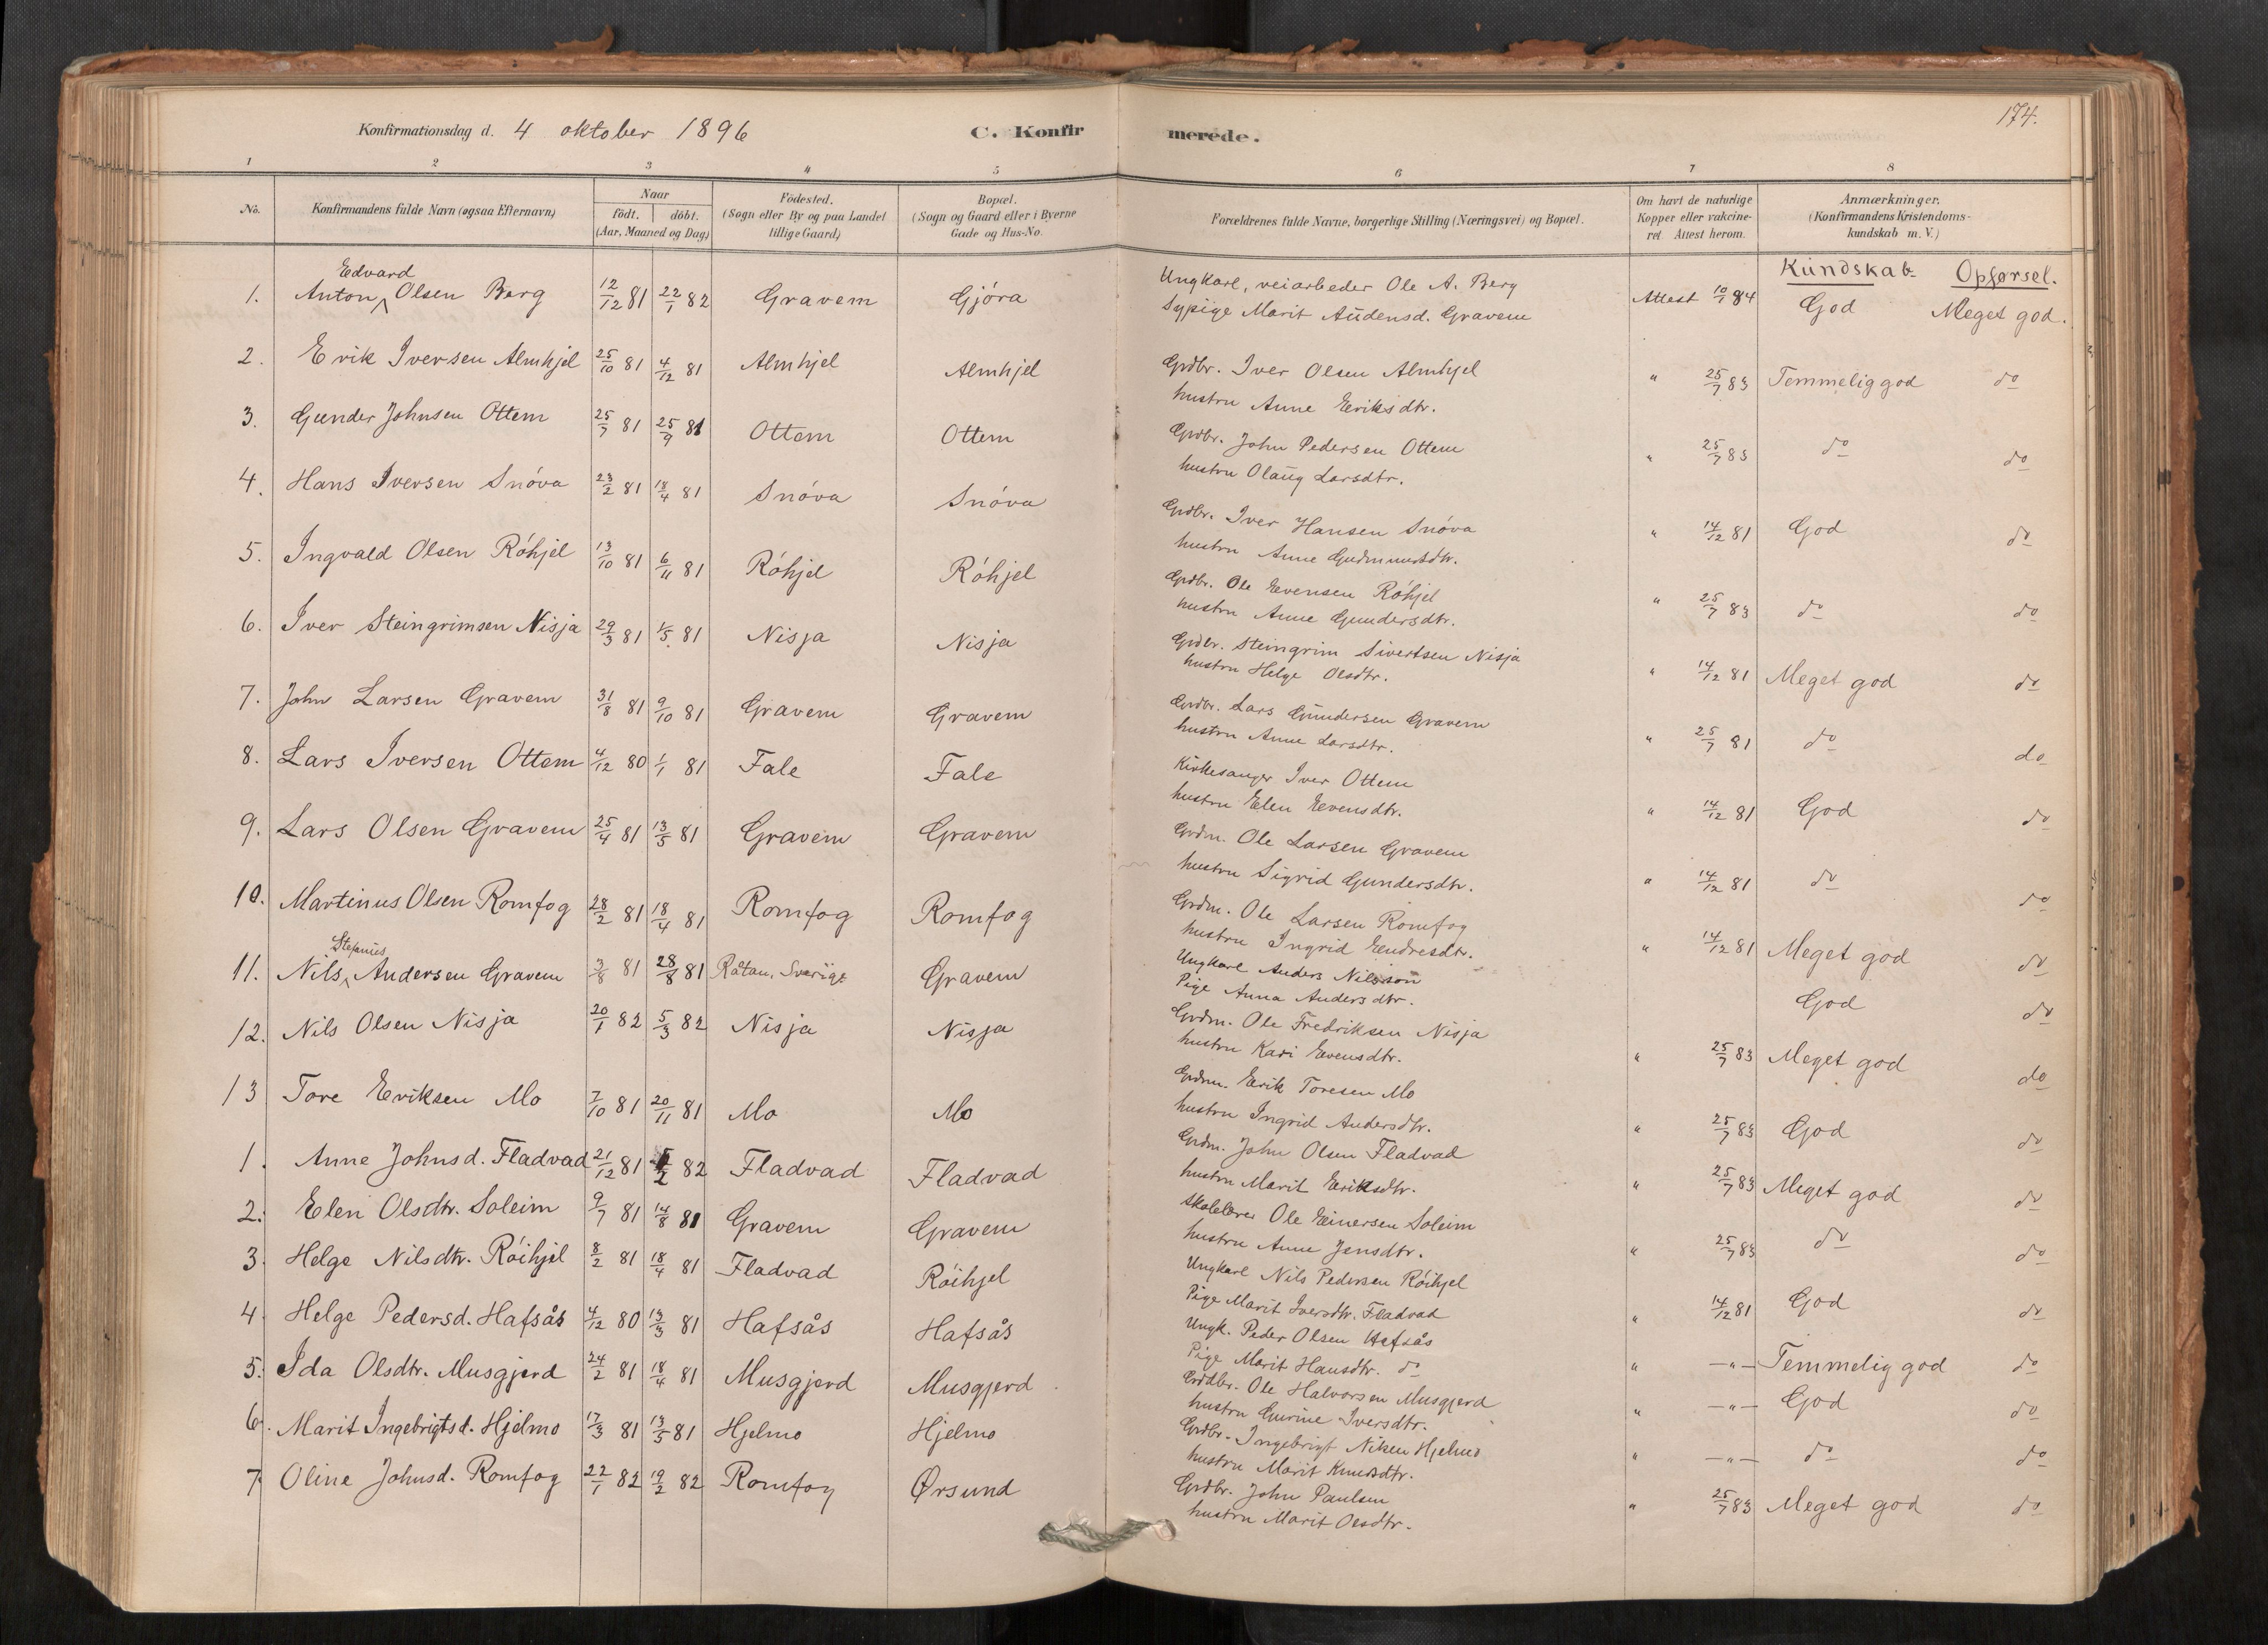 174.
Konfirmationsdag d. 4 oktober 1896 C. Konfirmerede.
1 2 3 4 5 6 7 8
No. Konfirmandens fulde Navn (ogsaa Efternavn) Naar født. døbt. (Aar, Maaned og Dag) Fødested. (Sogn eller By og paa Landet tillige Gaard) Bopæl. (Sogn og Gaard eller i Byerne Gade og Hus-No. Forældrenes fulde Navne, borgerlige Stilling (Næringsvei) og Bopæl. Om havt de naturlige Kopper eller vakcineret Attest herom. Anmærkninger. (Konfirmandens Kristendomskundskab m. V.)
Kundskab Opførsel.
1. Anton Edvard Olsen Berg 12/12 81 22/1 82 Gravem Gjóra Ungkarl, veiarbeder Ole A. Berg Attest 10/1 84 God Meget god.
Sypige Marit Audensd. Gravem
2. Erik Iversen Almhjel 25/10 81 4/12 81 Almhjel Almhjel Grdbr. Iver Olsen Almhjel " 25/7 83 Temmelig god do
hustru Anne Eriksdtr.
3. Gunder Johnsen Ottem 25/7 81 25/9 81 Ottem Ottem Grdbr. John Pedersen Ottem " 25/7 83 do do
hustru Olaug Larsdtr.
4. Hans Iversen Snóva 23/2 81 18/4 81 Snóva Snóva Grdbr. Iver Hansen Snóva " 14/12 81 God do
hustru Anne Gudmundsdtr.
5. Ingvald Olsen Róhjel 13/10 81 6/11 81 Róhjel Róhjel Grdbr. Ole Evensen Róhjel " 25/7 83 do do
hustru Anne Gundersdtr.
6. Iver Steingrimsen Nisja 29/3 81 1/5 81 Nisja Nisja Grdbr. Steingrim Sivertsen Nisja " 14/12 81 Meget god do
hustru Helge Olsdtr.
7. John Larsen Gravem 31/8 81 9/10 81 Gravem Gravem Grdbr. Lars Gundersen Gravem " 25/7 81 do do
hustru Anne Larsdtr.
8. Lars Iversen Ottem 4/12 80 1/1 81 Fale Fale Kirkesanger Iver Ottem " 14/12 81 God do
hustru Elen Evensdtr.
9. Lars Olsen Gravem 25/4 81 13/5 81 Gravem Gravem Grdm. Ole Larsen Gravem " 14/12 81 do do
hustru Sigrid Gundersdtr.
10. Martinus Olsen Romfog 28/2 81 18/4 81 Romfog Romfog Grdm. Ole Larsen Romfog " 14/12 81 Meget god do
hustru Ingrid Endresdtr.
11. Nils Stefanus Andersen Gravem 3/8 81 28/8 81 Råtan, Sverige Gravem Ungkarl Anders Nilsson God do
Pige Anna Andersdtr.
12. Nils Olsen Nisja 20/1 82 5/3 82 Nisja Nisja Grdm. Ole Fredriksen Nisja " 25/7 83 Meget god do
hustru Kari Evensdtr.
13 Tore Eriksen Mo 7/10 81 20/11 81 Mo Mo Grdm. Erik Toresen Mo " 25/7 83 God do
hustru Ingrid Andersdtr.
1. Anne Johnsd. Fladvad 21/12 81 5/2 82 Fladvad Fladvad Grdm. John Olsen Fladvad " 25/7 83 Meget god do
hustru Marit Eriksdtr.
2. Elen Olsdtr. Soleim 9/7 81 14/8 81 Gravem Gravem Skolelærer Ole Einersen Soleim " 25/7 83 do do
hustru Anne Jensdtr.
3. Helge Nilsdtr. Róihjel 8/2 81 18/4 81 Fladvad Róihjel Ungkarl Nils Pedersen Róihjel " 14/12 81 God do
Pige Marit Iversdtr. Fladvad
4. Helge Pedersd. Hafsås 4/12 80 13/3 81 Hafsås Hafsås Ungk. Peder Olsen Hafsås " —"— Temmelig god do
Pige Marit Hansdtr. do
5. Ida Olsdtr. Musgjerd 24/2 81 18/4 81 Musgjerd Musgjerd Grdbr. Ole Halvorsen Musgjerd " —"— God do
hustru Gurine Iversdtr.
6. Marit Ingebrigtsd. Hjelmo 17/3 81 13/5 81 Hjelmo Hjelmo Grdbr. Ingebrigt Nilsen Hjelmo " —"— do do
hustru Marit Knudsdtr.
7. Oline Johnsd. Romfog 22/1 82 19/2 82 Romfog Ørsund Grdbr. John Paulsen " 25/7 83 Meget god do
hustru Marit Olsdtr.